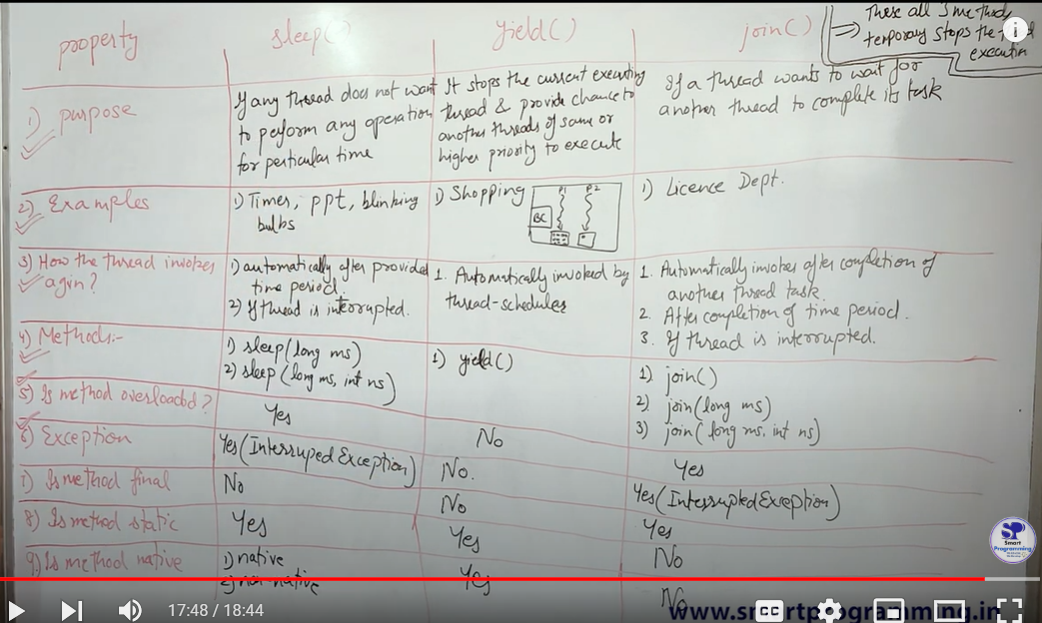 property
sleep()
yield()
join()
⇒ These all 3 methods
temporary stops the
execution
1) purpose
If any thread does not want
to perform any operation
for perticular time
It stops the current executing
thread & provide chance to
another threads of same or
higher priority to execute
If a thread wants to wait for
another thread to complete its task
2) Examples
1) Times, ppt, blinking
bulbs
1) Shopping
P1 P2
BC
1) Licence Dept.
3) How the thread invokes
agin?
1) automatically after provided
time period.
2) If thread is interrupted.
1. Automatically invoked by
thread-scheduler
1. Automatically invokes after completion of
another thread task.
2. After completion of time period.
3. If thread is interrupted.
4) Methods:-
1) sleep(long ms)
2) sleep (long ms, int ns)
1) yield()
1) join()
2) join(long ms)
3) join(long ms, int ns)
5) Is method overloaded?
Yes
No
Yes
6) Exception
Yes (Interruped Exception)
No.
Yes (Interrupted Exception)
7) Is method final
No
No
Yes
8) Is method static
Yes
Yes
No
9) Is method native
1) native
2) non-native
Yes
No
SP
Smart
Programming
17:48 / 18:44
www.smartprogramming.in
CC